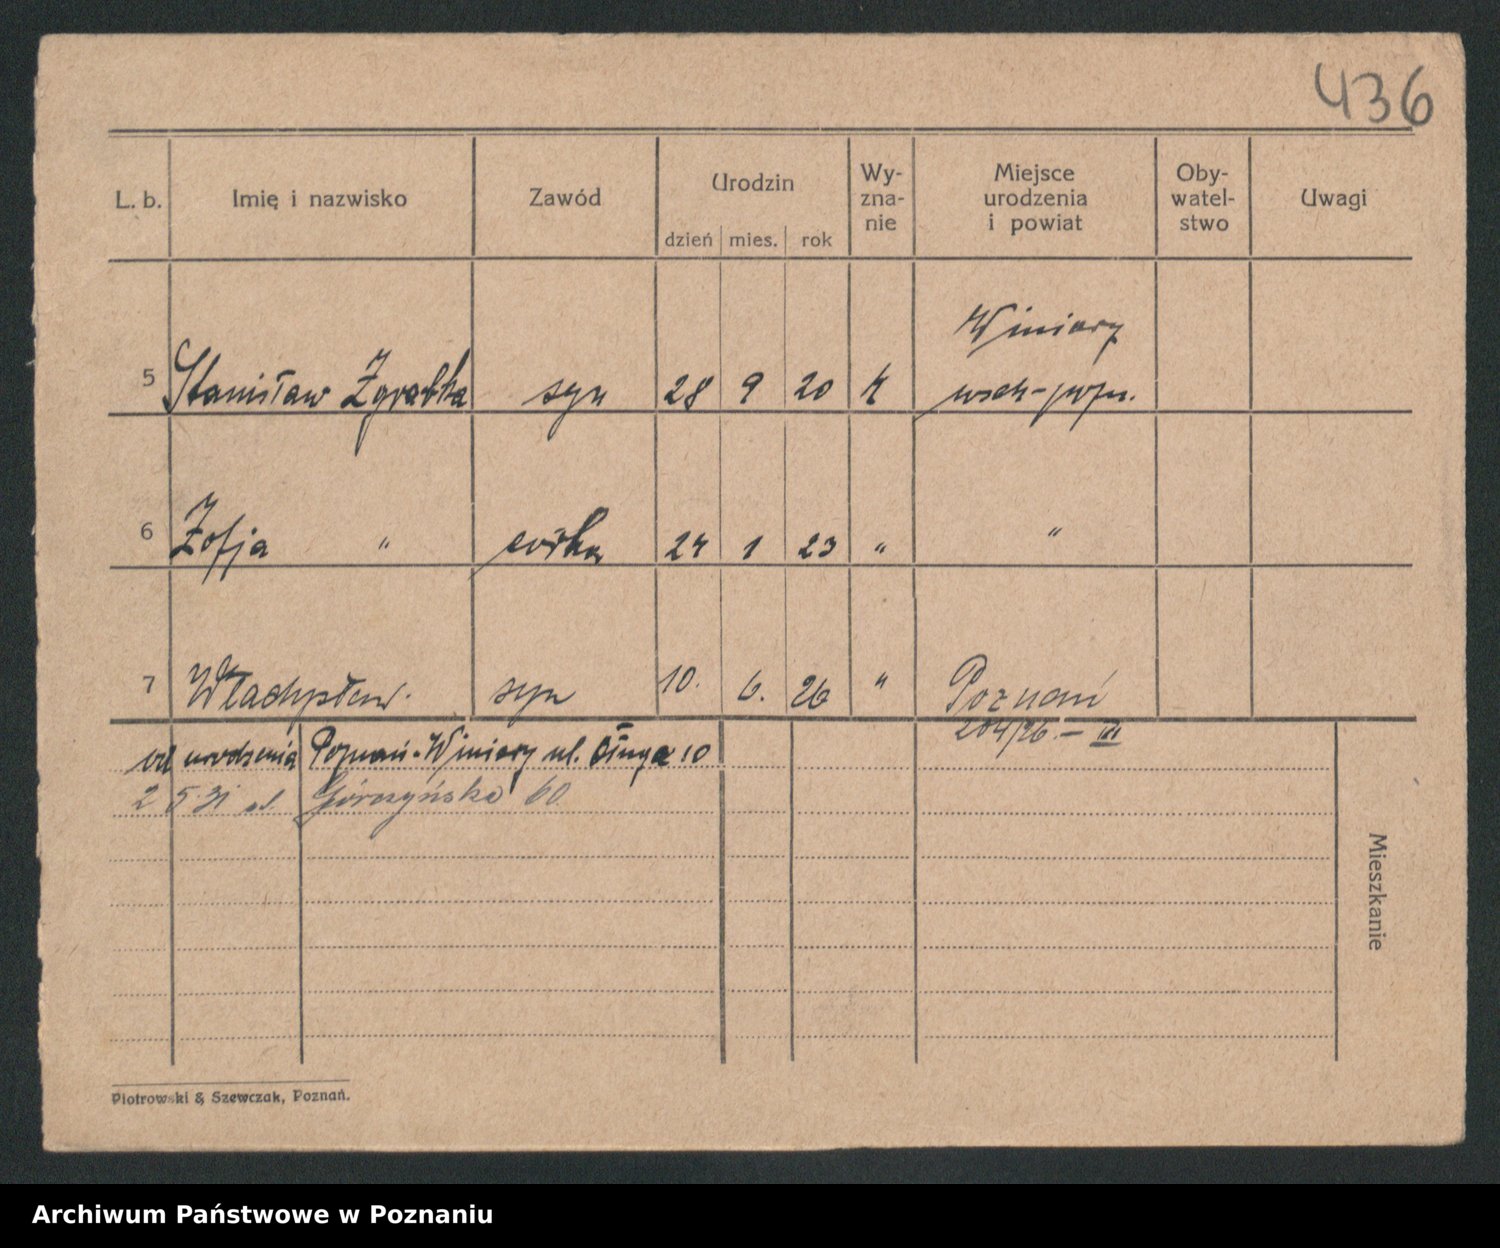 436
L. b. Imię i nazwisko Zawód Urodzin Wy-zna-nie Miejsce urodzenia i powiat Oby-watel-stwo Uwagi
dzień mies. rok
Winiary
5 Stanisław Zgrabka syn 28 9 20 k wsch-pozn.
6 Zofja " córka 24 1 23 " "
7 Władysław. syn 10. 6. 26 " Poznań
204/26.- III
od urodzenia Poznań-Winiary ul. Długa 10
2 5 31 Górczyńska 60
Mieszkanie
Piotrowski & Szewczak, Poznań.
Archiwum Państwowe w Poznaniu